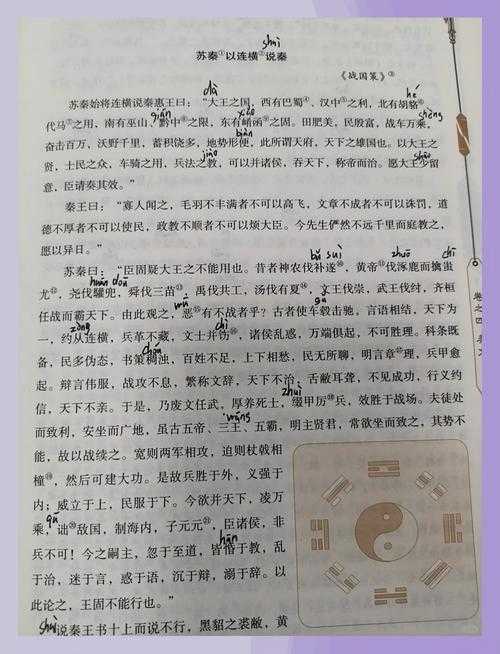 shuì
苏秦①以连横②说秦
《战国策》③
dà hé
苏秦始将连横说秦惠王曰：“大王之国，西有巴蜀④、汉中⑤之利，北有胡貉⑥、
qián xiáo shèng
代马⑦之用，南有巫山、黔中⑧之限，东有崤函⑨之固。田肥美，民殷富，战车万乘，
biàn
奋击百万，沃野千里，蓄积饶多，地势形便，此所谓天府，天下之雄国也。以大王之
jiào shǎo
贤，士民之众，车骑之用，兵法之教，可以并诸侯，吞天下，称帝而治。愿大王少留
意，臣请奏其效。”
秦王曰：“寡人闻之，毛羽不丰满者不可以高飞，文章不成者不可以诛罚，道
德不厚者不可以使民，政教不顺者不可以烦大臣。今先生俨然不远千里而庭教之，
愿以异日。”
bǔ suì zhuō chī
苏秦曰：“臣固疑大王之不能用也。昔者神农伐补遂⑩，黄帝⑪伐涿鹿而禽蚩
huān dōu wū gǔ
尤⑫，尧伐驩兜，舜伐三苗⑬，禹伐共工，汤伐有夏⑭，文王伐崇，武王伐纣，齐桓
任战而霸天下。由此观之，恶⑮有不战者乎？古者使车毂击驰，言语相结，天下为
zòng chì
一，约从连横，兵革不藏，文士并饬⑯，诸侯乱惑，万端俱起，不可胜理。科条既
chóu
备，民多伪态，书策稠浊，百姓不足，上下相愁，民无所聊，明言章⑰理，兵甲愈
起。辩言伟服，战攻不息，繁称文辞，天下不治，舌敝耳聋，不见成功，行义约
zhuì
信，天下不亲。于是，乃废文任武，厚养死士，缀甲厉⑱兵，效胜于战场。夫徒处
wàng
而致利，安坐而广地，虽古五帝、三王、五霸，明主贤君，常欲坐而致之，其势不
能，故以战续之。宽则两军相攻，迫则杖戟相
撞⑲，然后可建大功。是故兵胜于外，义强于
内；威立于上，民服于下。今欲并天下，凌万
qū
乘，诎⑳敌国，制海内，子元元㉑，臣诸侯，非
hūn
兵不可！今之嗣主，忽于至道，皆惛于教，乱
于治，迷于言，惑于语，沉于辩，溺于辞。以
此论之，王固不能行也。”
shuì
说秦王书十上而说不行，黑貂之裘敝，黄
卷之四